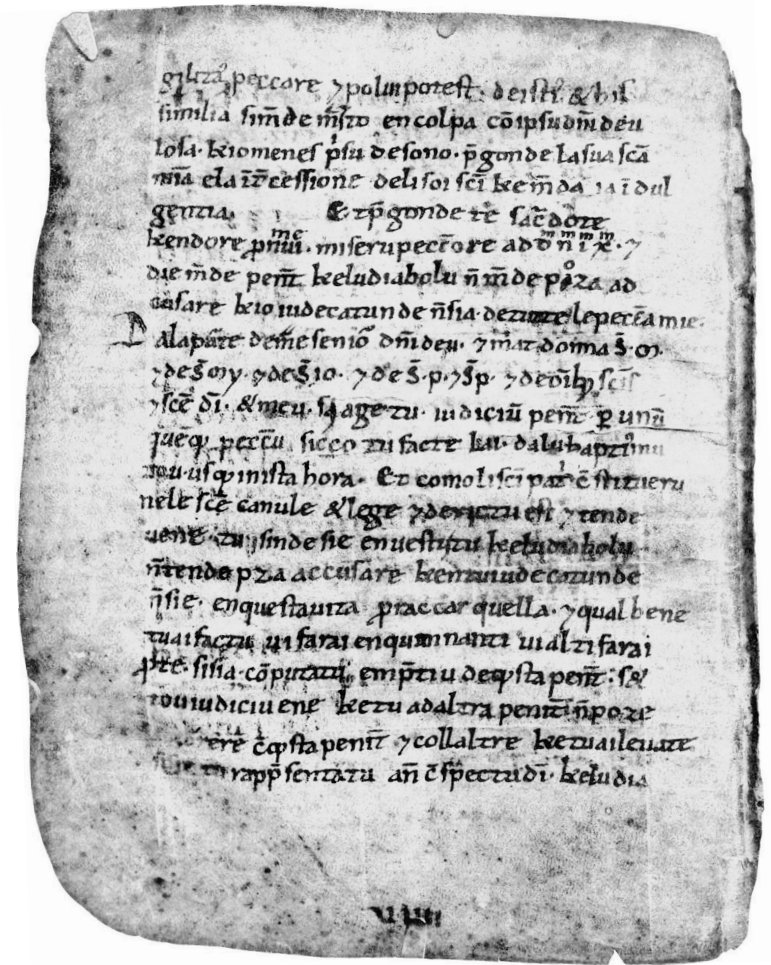 peccare ⁊ polui potest. de isti. & his
similia. sim̄de m̄sto en colpa cōipsudm̄deu
losa. keiomenes p̄su desono. p̄gonde lasua scā
mīa ela īt̄cessione delisoi scī. kem̄da īdul
gentia. E. tp̄gonde te sac̄dote
kendore miseru pecc̄ore ad dn̄i xp̄. ⁊
die m̄de penīt. keludiabolu n̄ m̄de p̄oza ad
cusare. keio iudecatunde n̄sia. detutte lepecc̄a mie.
Dalaparte demeseniō dm̄deu. ⁊ m̄at doñna s̄. m.
⁊ de s̄. my. ⁊ de s̄. io. ⁊ de s̄. p. ⁊ s̄p. ⁊ de om̄ib; scīs
⁊ scē dī. & meu. si age tu iudiciū penīt. p̱ unū
queq; pecc̄u. sicco tu facte lai. dalu baptismu
tou. usq; inista hora. Et como li scī pat̄ cōstitueru
nele scē canule & lege ⁊ derictu est ⁊ tende
uene. tu sinde sie enuestitu keludiabolu
n̄tende pza accusare kentuiudecatunde
n̄sie. enquestauita praccar quella. ⁊ qual bene
tuai factu ui farai enquinnanti ui alti farai
p̱te. sisia. cōputatu em p̄tiu deq;sta penīt. s&
tou iudiciu ene ketu adaltra penīt. n̄pote
ere c̄q;sta penīt ⁊ collaltre ketuai leuate
rapp̄sentatu an̄ c̄spectu dī. keludia